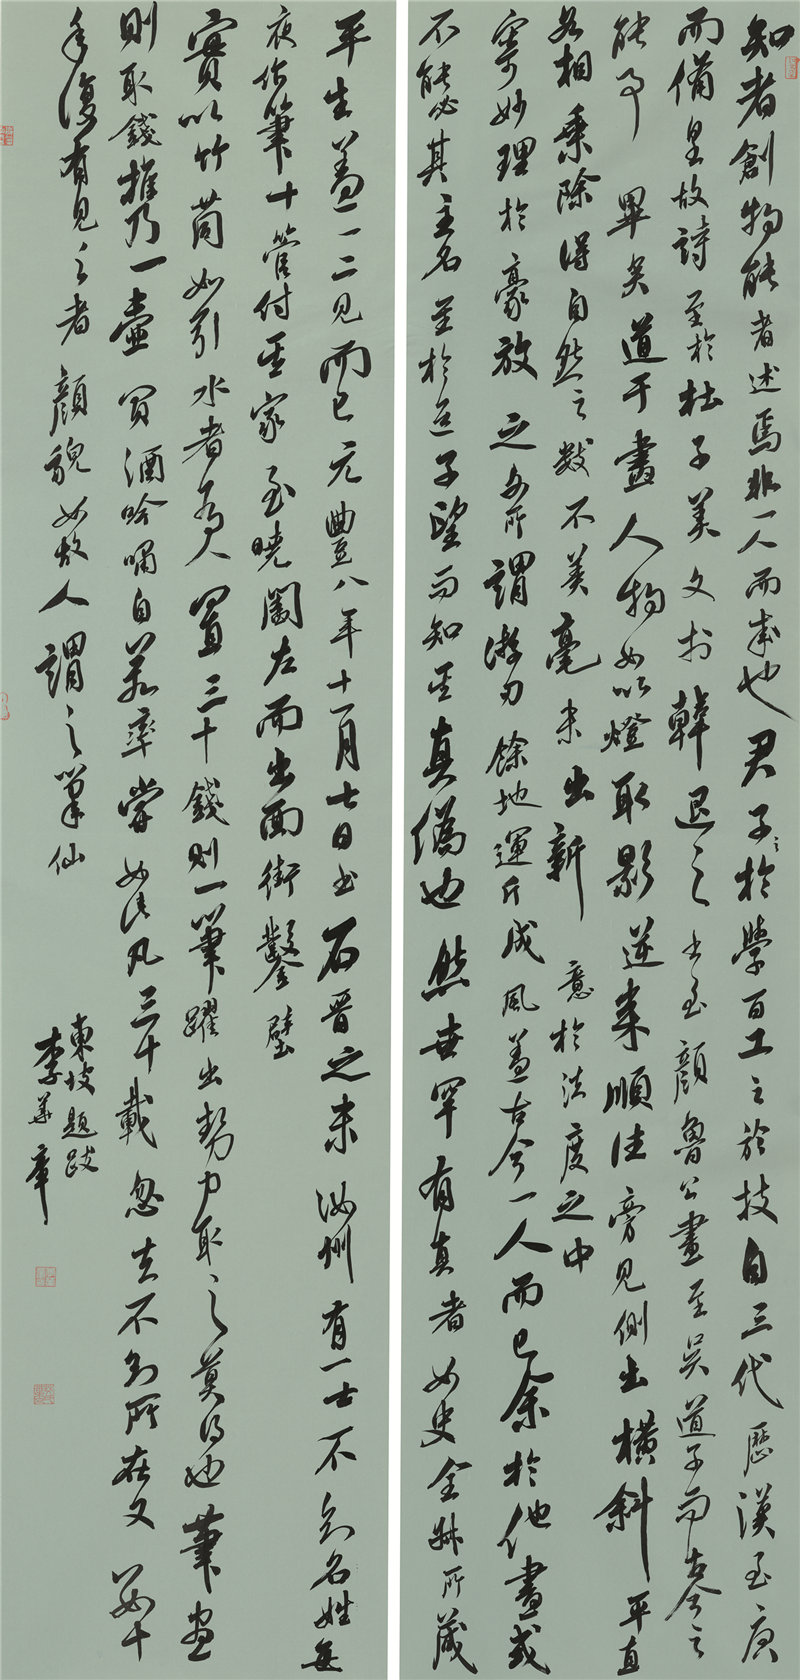 知者創物能者述焉非一人而成也君子之於學百工之於技自三代歷漢至唐
而備矣故詩至於杜子美文於韓退之書至顏魯公畫至吳道子而古今之
能事畢矣道子畫人物如以燈取影逆來順往旁見側出橫斜平直
各相乘除得自然之數不差毫末出新意於法度之中
寄妙理於豪放之外所謂游刃餘地運斤成風蓋古今一人而已余於他畫或
不能必其主名至於道子望而知其真偽也然世罕有真者如史全叔所藏
平生蓋一二見而已元豐八年十一月七日書石晉之末汝州有一士不知名姓每
夜作筆十管付其家至曉闔左而出面街鑿壁
實以竹筒如引水者有人置三十錢則一筆躍出勢力取之莫得也筆盡
則取錢攜乃一壺買酒吟嘯自若率嘗如此凡三十載忽去不知所在又數十
年復有見之者顏貌如故人謂之筆仙
東坡題跋
李華章